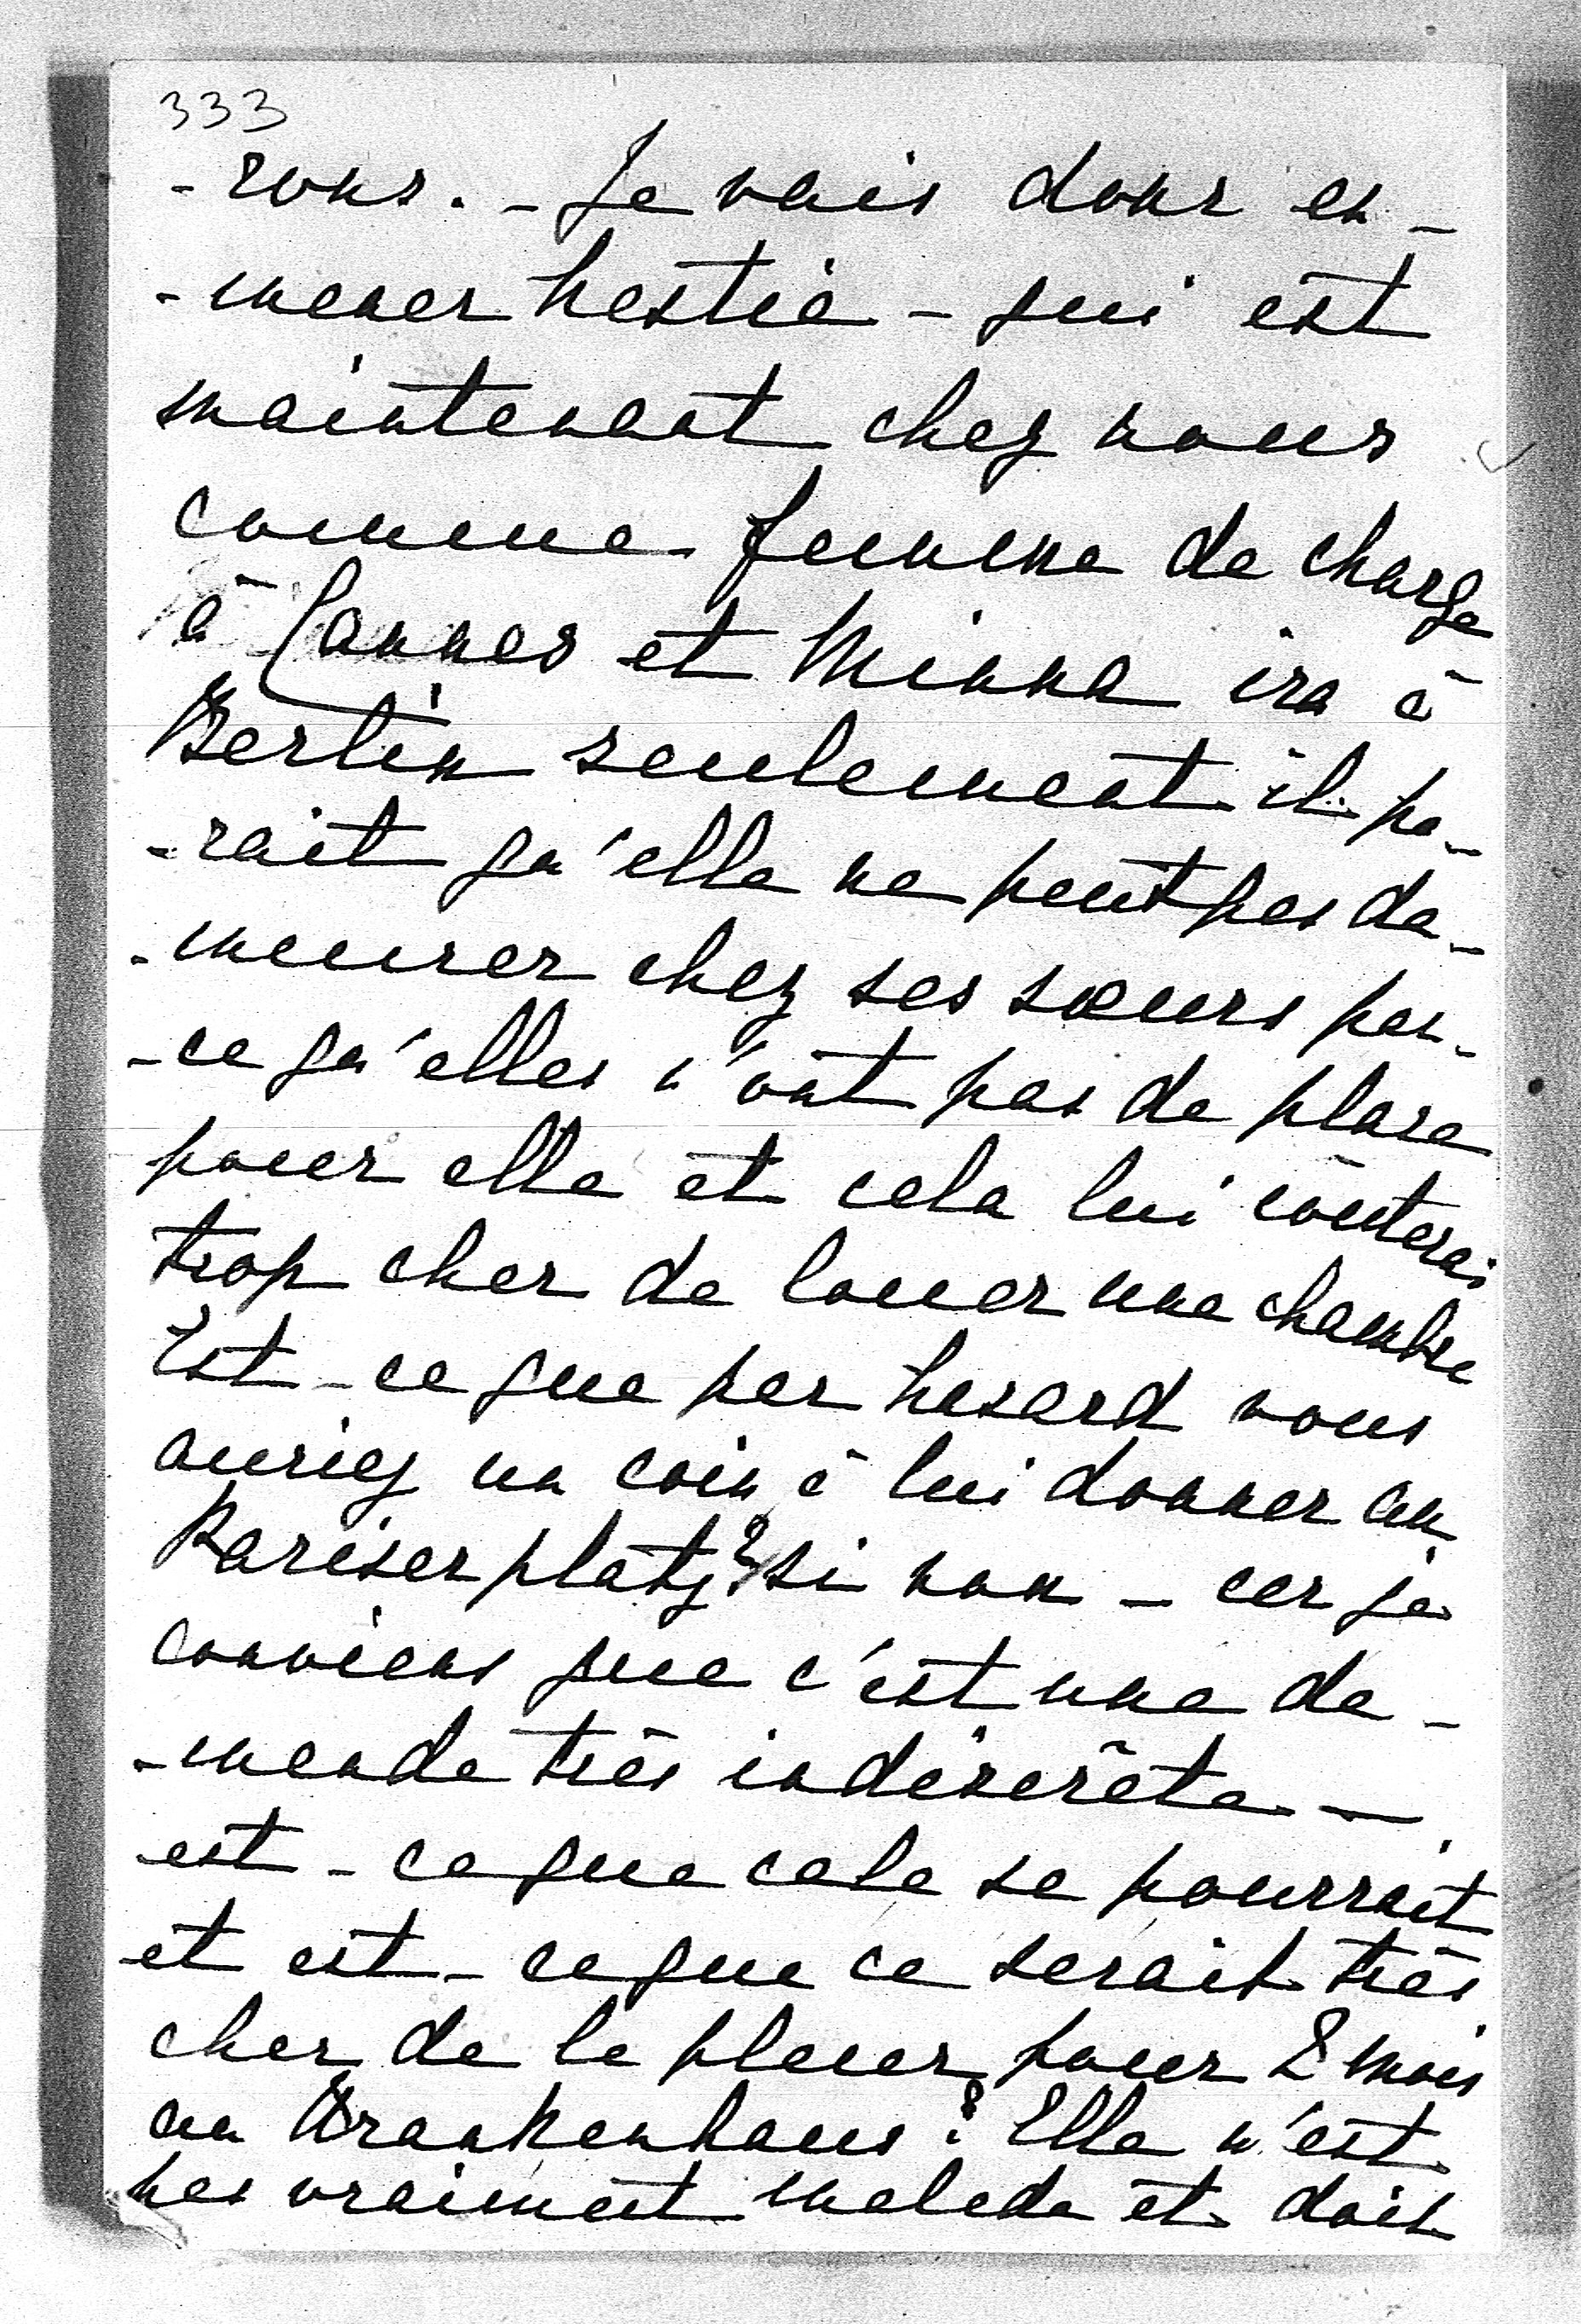 333
-rons. - Je vais donc em-
-mener Hestia - qui est
maintenant chez nous
comme femme de charge
à Cannes et Minna ira à
Berlin seulement il pa-
-rait qu'elle ne peut pas de-
-meurer chez ses sœurs par-
-ce qu'elles n'ont pas de place
pour elle et cela lui coûterai
trop cher de louer une chambre
Est-ce que par hasard vous
auriez un coin à lui donner au
Pariserplatz? si non - car je
conviens que c'est une de-
-mande très indiscrète -
est-ce que cela se pourrait
et est-ce que ce serait très
cher de la placer pour 2 mois
au Krankenhaus? Elle n'est
pas vraiment malade et doit